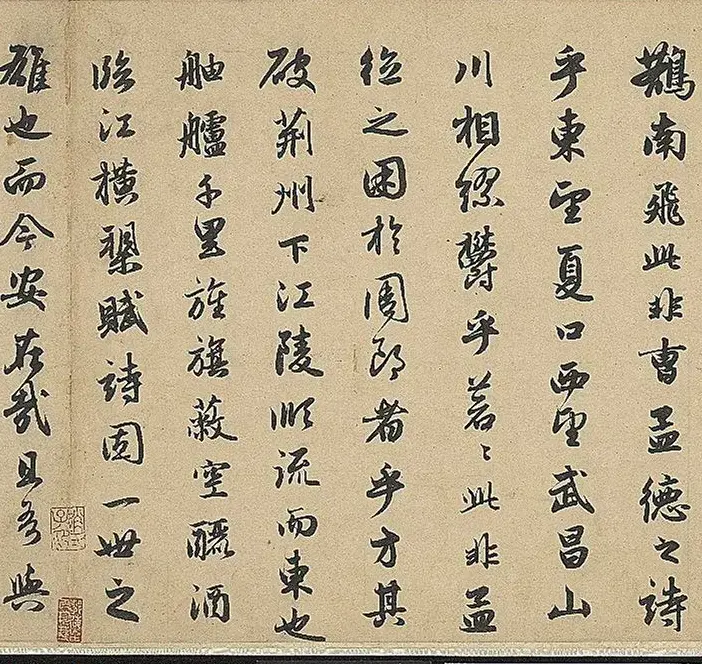 鵲南飛此非曹孟德之詩
乎東望夏口西望武昌山
川相繆鬱乎蒼〻此非孟
德之困於周郎者乎方其
破荊州下江陵順流而東也
舳艫千里旌旗蔽空釃酒
臨江橫槊賦詩固一世之
雄也而今安在哉且吾與